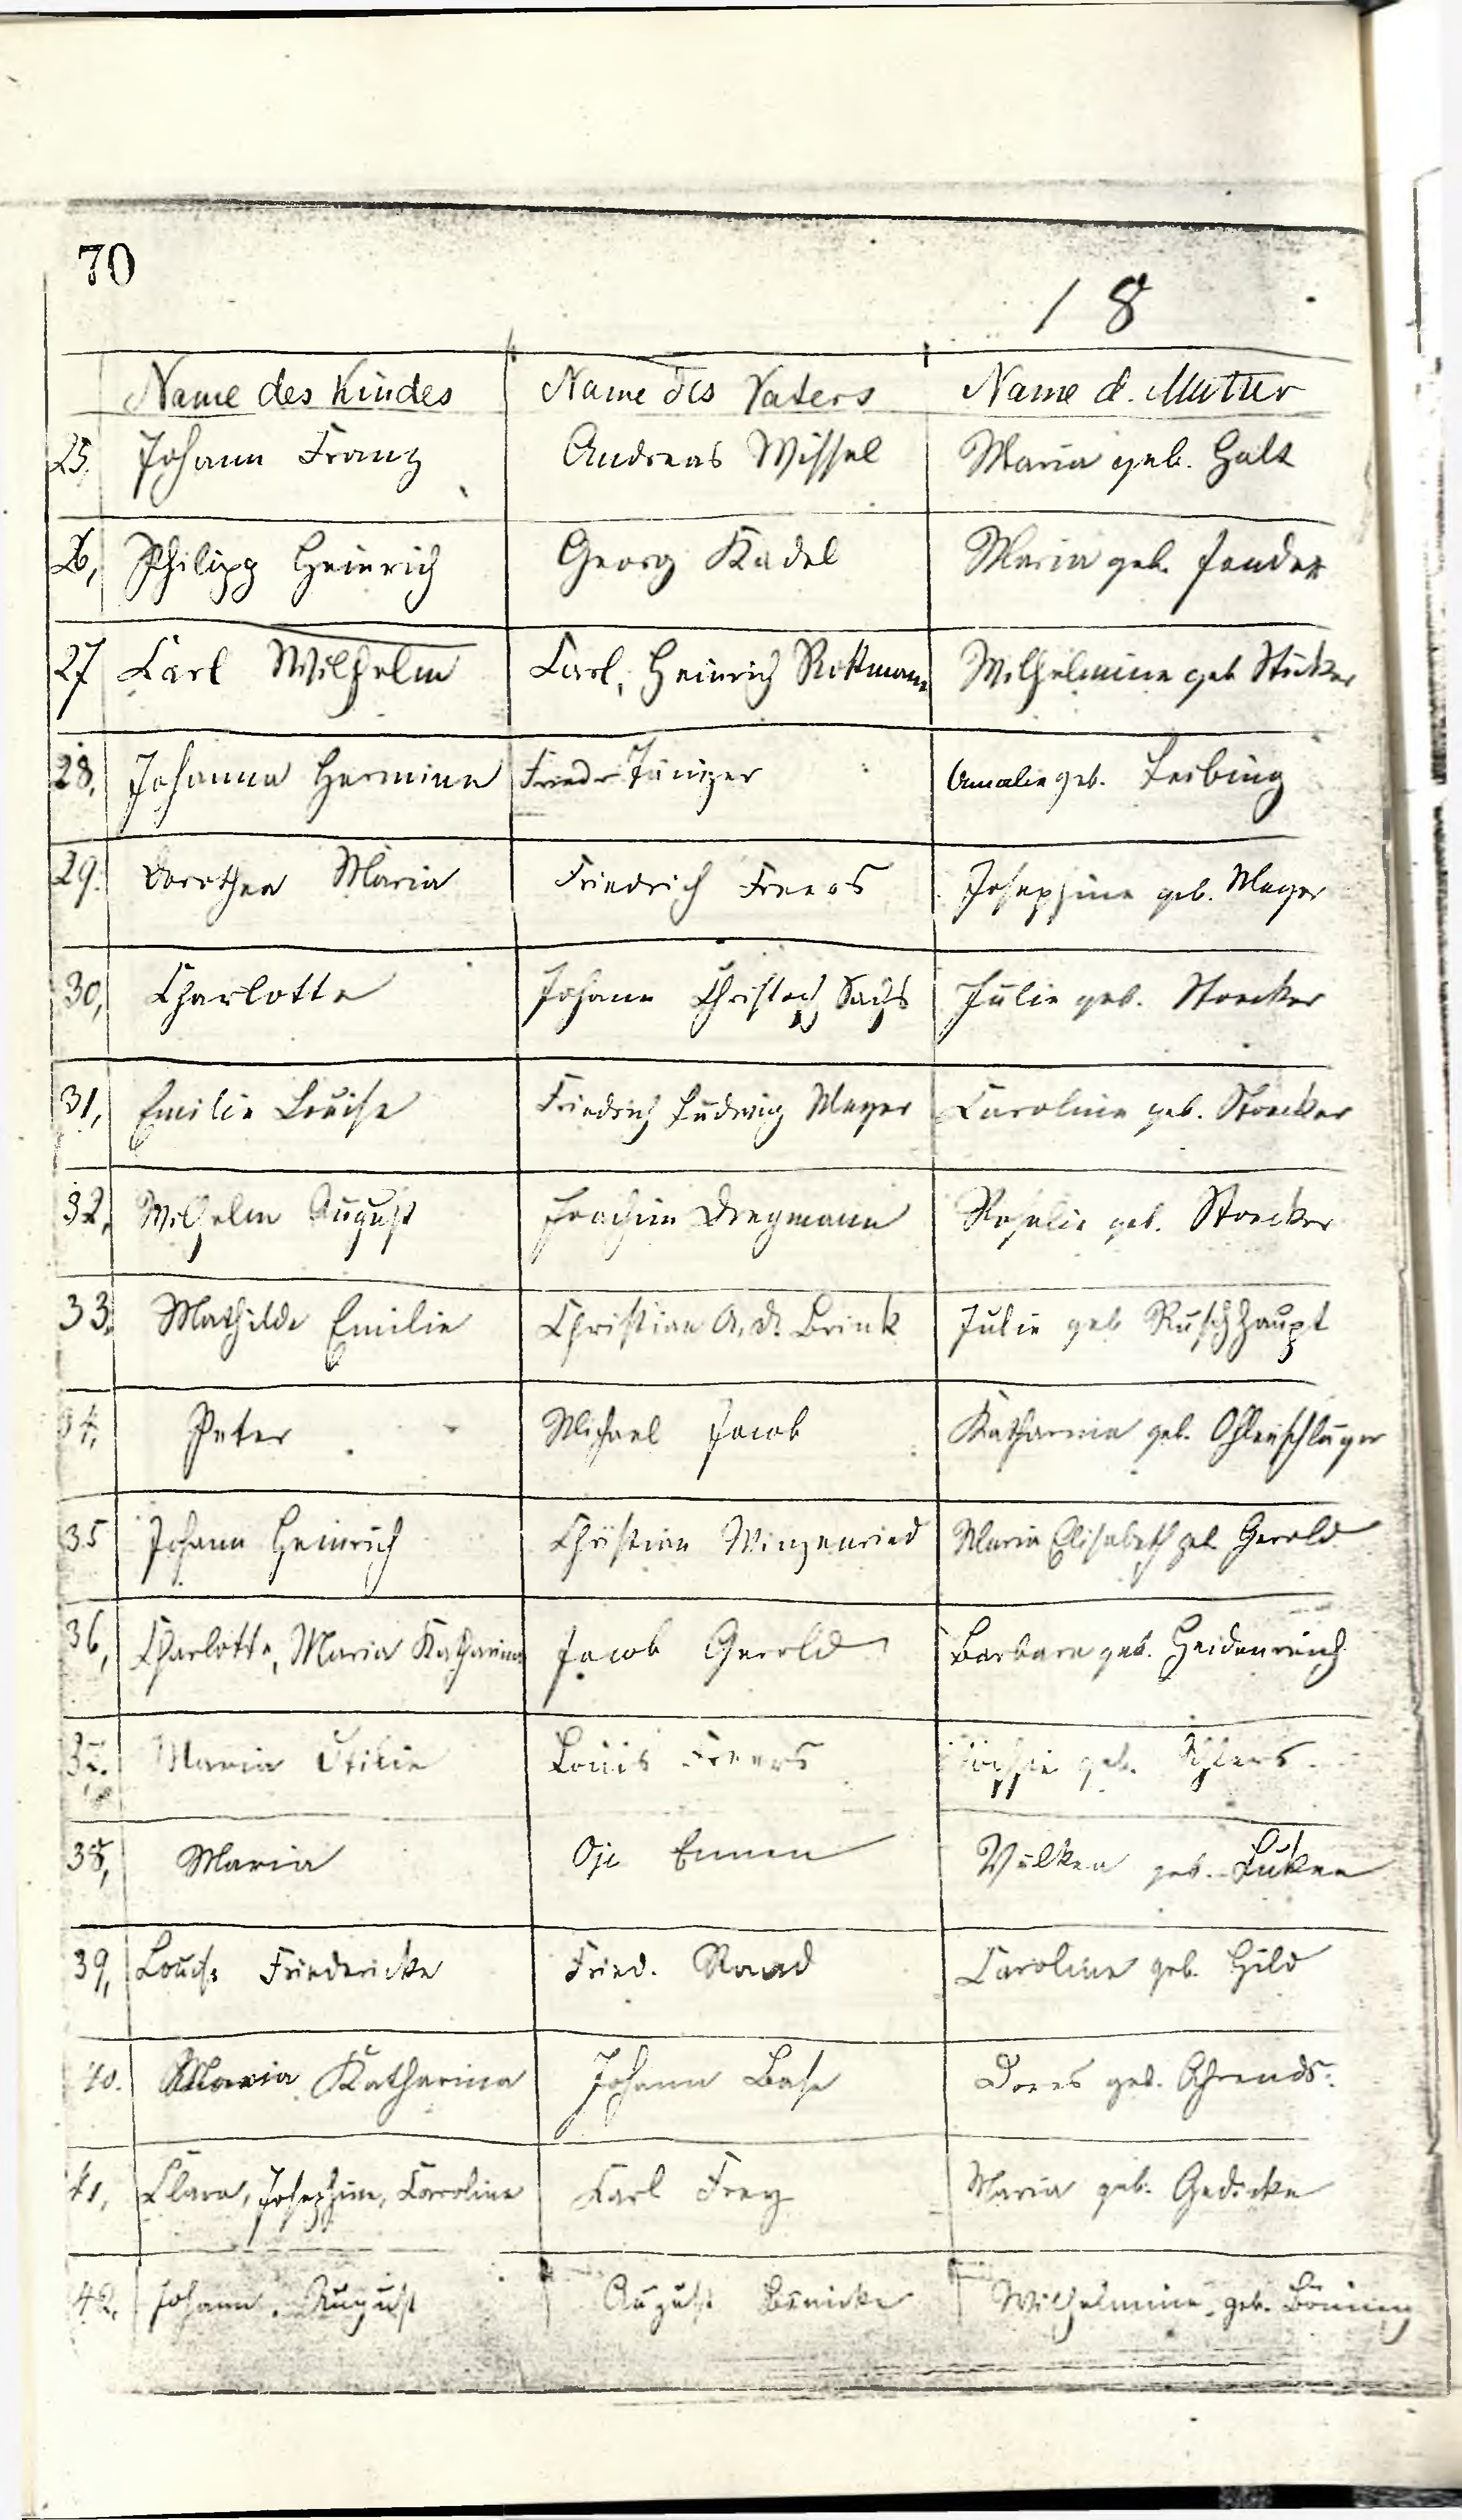 70
18
Name des Kindes Name des Vaters Name d. Mutter
25. Johann Franz Andreas Wissel Maria geb. Galt
26, Philipp Heinrich Georg Kadel Maria geb.
27 Carl Wilhelm Carl, Heinrich Rottmann Wilhelmine geb Stücker
28, Johanna Hermine Friedr Jünger Amalie geb. Leibing
29. Dorothea Maria Friedrich Freers Josephine geb. Meyer
30, Charlotte Johann Christoph Sachs Julie geb. Stoecker
31, Emilie Louise Friedrich Ludwig Meyer Caroline geb. Stoecker
32, Wilhelm August Joachim Dregmann Rosalie geb. Stoecker
33. Mathilde Emilie Christian A. d. Brink Julie geb Ruschhaupt
34. Peter Michael Jacob Katharina geb. Ohlenschläger
35 Johann Heinrich Christian Winzenried Maria Elisabeth geb Gerold
36, Charlotte, Maria Katharina Jacob Gerold Barbara geb. Heidenreich
37. Maria Otilie Louis Freers geb. Ehlers
38, Maria Oje Emmen geb. Lüken
39, Louise Friedericke Fried. Raad Caroline geb. Hild
40. Maria Katharina Johann Base Dores geb. Ahrends.
41, Clara, Josephine, Caroline Carl Frey Maria geb. Gedicke
42. Johann August August Bünicke Wilhelmine geb. Böning